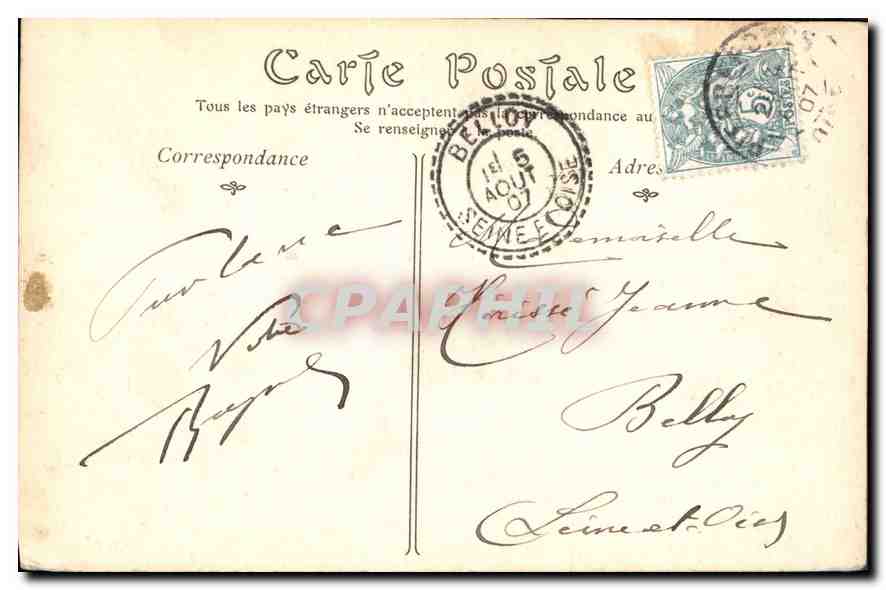 Carte Postale
Tous les pays étrangers n'acceptent pas la correspondance au
Se renseigner à la poste.
Correspondance
Adres
BELLOY
1E 5
AOUT
07
SEINE ET OISE
5c
07
CPAPHIL
Votre
Mademoiselle
Jeanne
Belloy
Seine-et-Oise